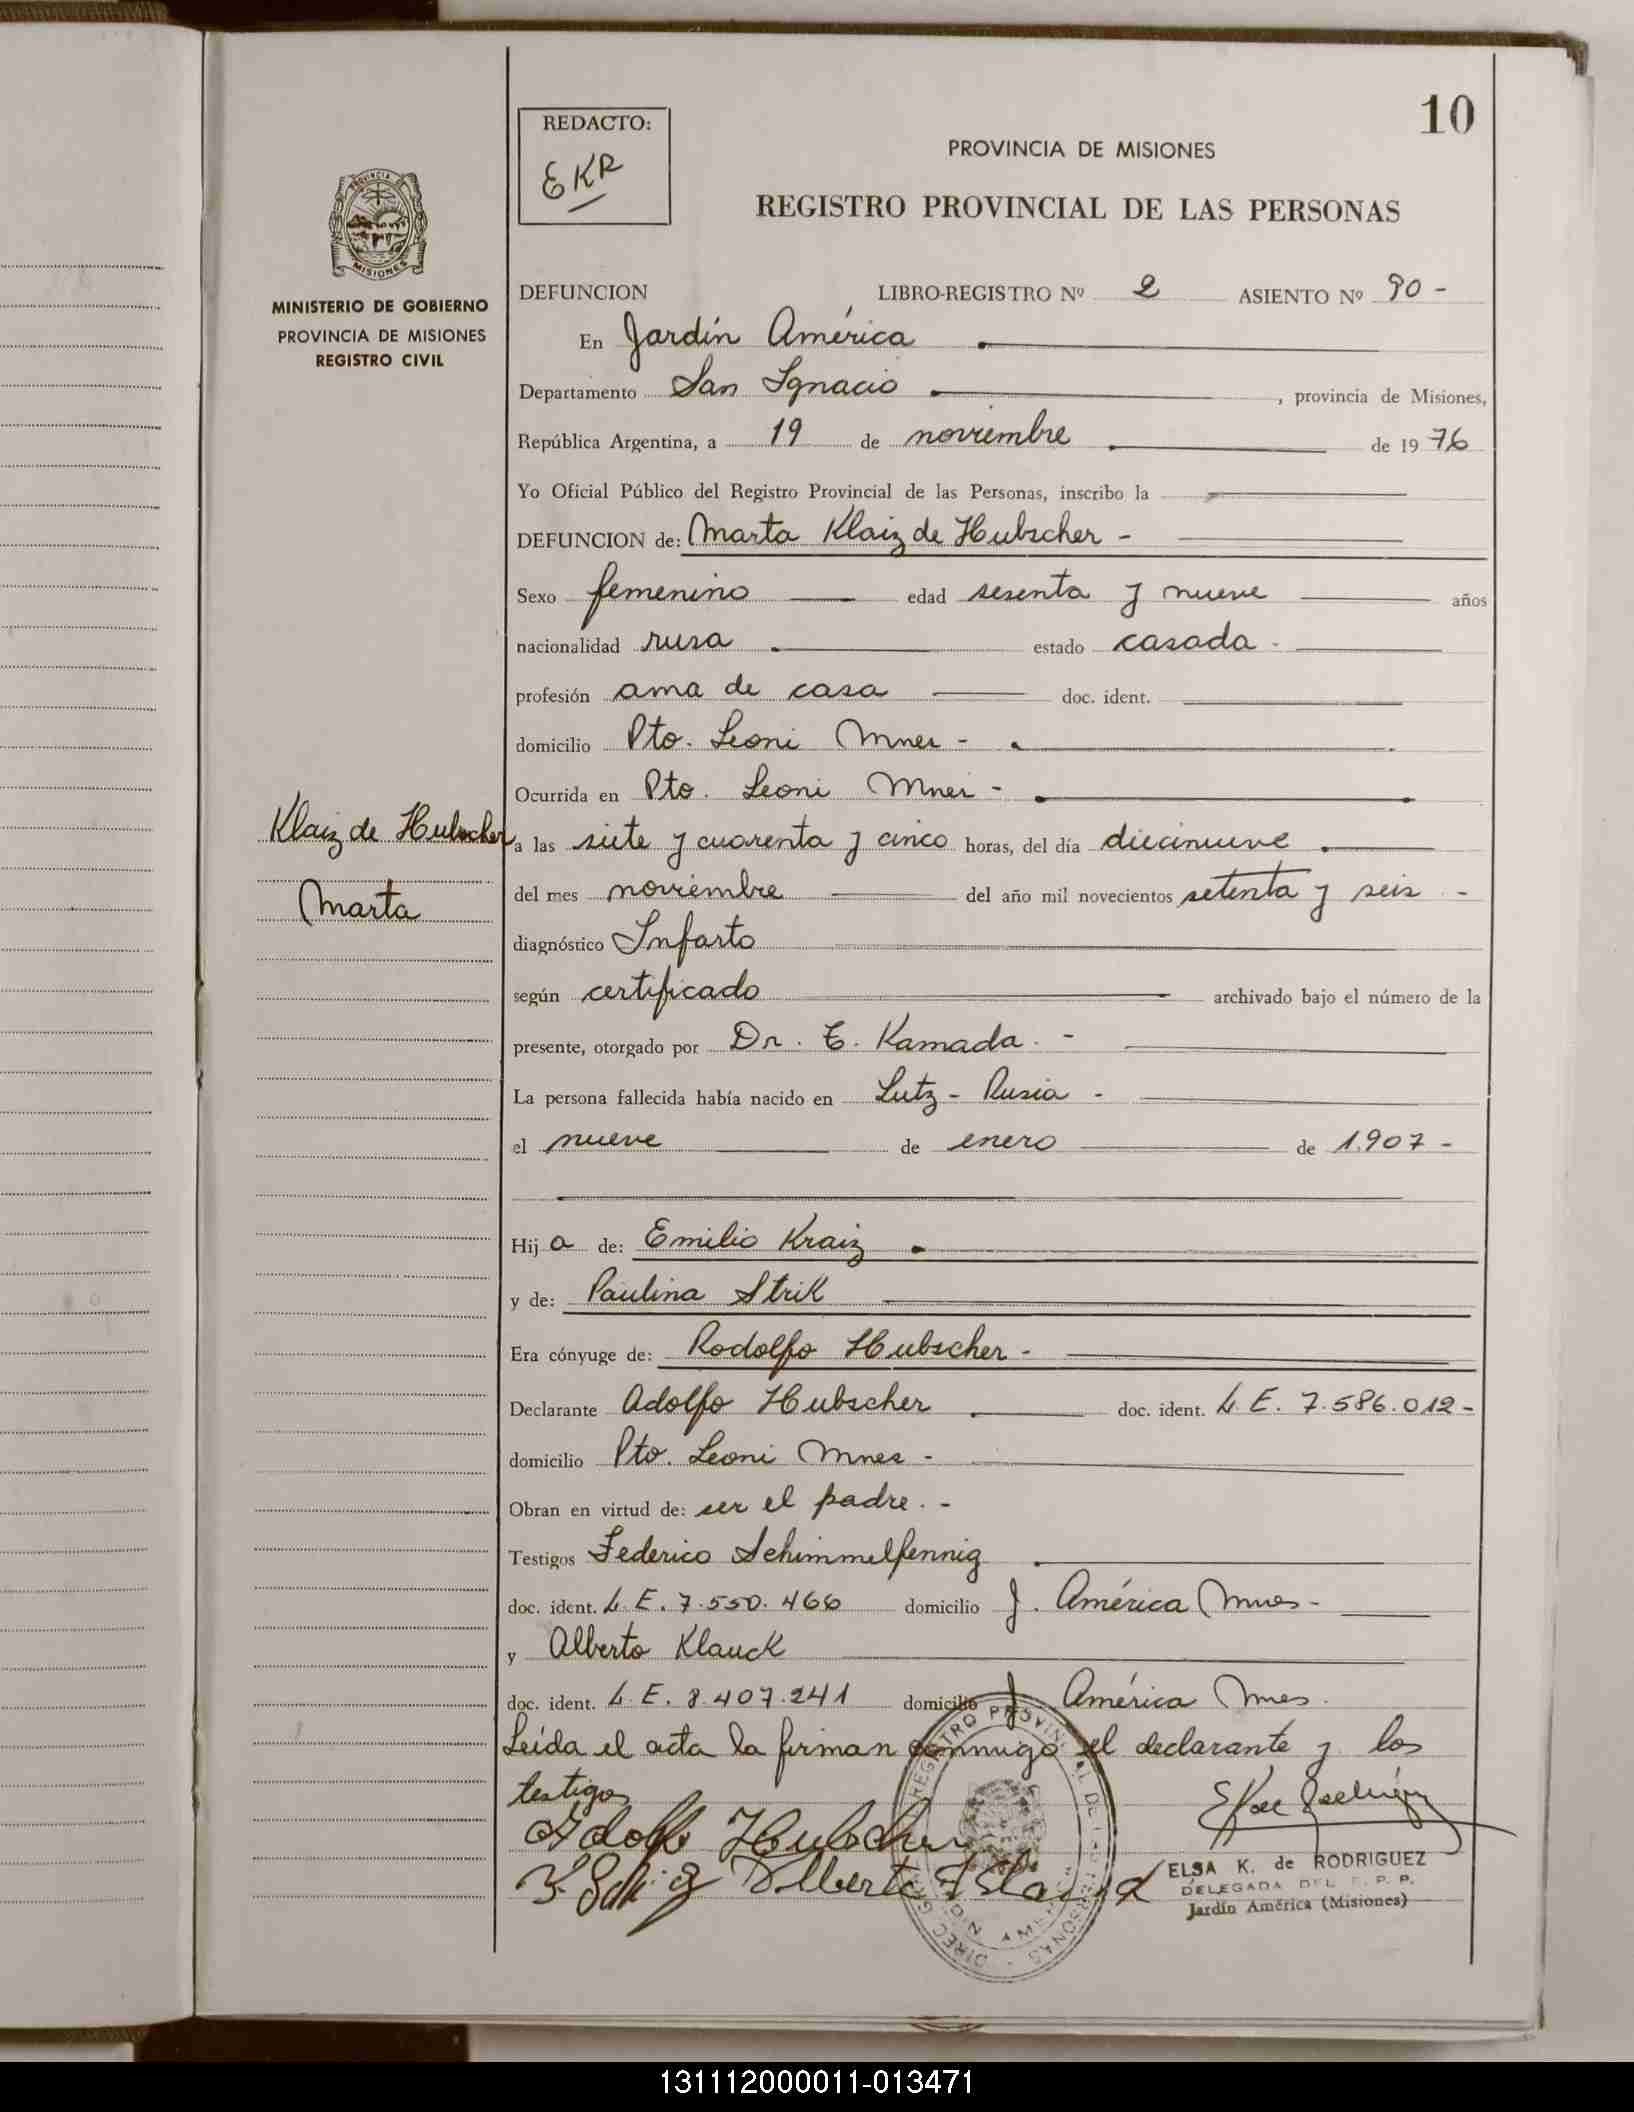 10
REDACTO:
EKR
PROVINCIA DE MISIONES
REGISTRO PROVINCIAL DE LAS PERSONAS
PROVINCIA DE
MISIONES
MINISTERIO DE GOBIERNO
PROVINCIA DE MISIONES
REGISTRO CIVIL
DEFUNCION LIBRO-REGISTRO Nº 2 ASIENTO Nº 90 -
En Jardín América
Departamento San Ignacio , provincia de Misiones,
República Argentina, a 19 de noviembre de 1976
Yo Oficial Público del Registro Provincial de las Personas, inscribo la
DEFUNCION de: Marta Klaiz de Hubscher -
Sexo femenino edad sesenta y nueve años
nacionalidad rusa estado casada -
profesión ama de casa doc. ident.
domicilio Pto. Leoni Mnes -
Ocurrida en Pto. Leoni Mnes -
Klaiz de Hubscher
Marta
a las siete y cuarenta y cinco horas, del día diecinueve
del mes noviembre del año mil novecientos setenta y seis -
diagnóstico Infarto
según certificado archivado bajo el número de la
presente, otorgado por Dr. E. Kamada. -
La persona fallecida había nacido en Lutz - Rusia -
el nueve de enero de 1.907 -
Hija de: Emilio Kraiz
y de: Paulina Strik
Era cónyuge de: Rodolfo Hubscher -
Declarante Adolfo Hubscher doc. ident. L.E. 7.586.012 -
domicilio Pto. Leoni Mnes -
Obran en virtud de: ser el padre. -
Testigos Federico Schimmelfennig
doc. ident. L.E. 7.550.466 domicilio J. América Mnes -
y Alberto Klauck
doc. ident. L.E. 8.407.241 domicilio J América Mnes.
Leída el acta la firman conmigo el declarante y los
testigos
Adolfo Hubscher
Alberto Klauck
ELSA K. de RODRIGUEZ
DELEGADA DEL R. P. P.
Jardín América (Misiones)
131112000011-013471